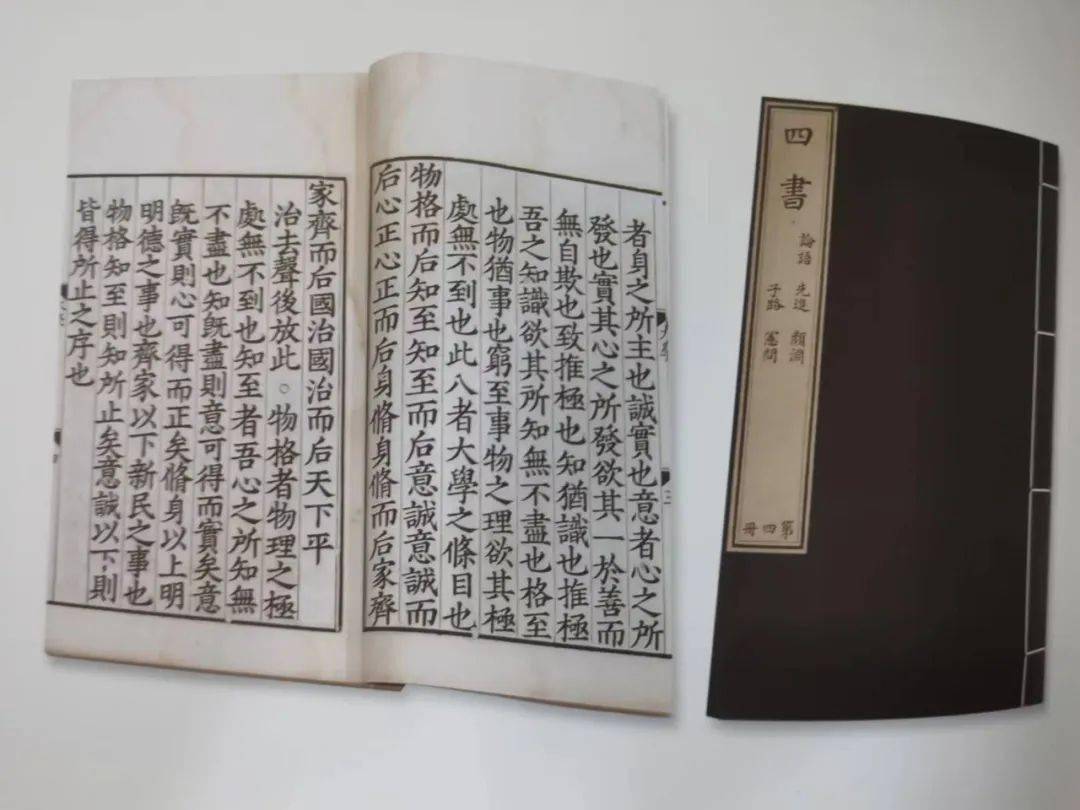 者身之所主也誠實也意者心之所
發也實其心之所發欲其一於善而
無自欺也致推極也知猶識也推極
吾之知識欲其所知無不盡也格至
也物猶事也窮至事物之理欲其極
處無不到也此八者大學之條目也
物格而后知至知至而后意誠意誠而
后心正心正而后身脩身脩而后家齊
家齊而后國治國治而后天下平
治去聲後放此○物格者物理之極
處無不到也知至者吾心之所知無
不盡也知旣盡則意可得而實矣意
旣實則心可得而正矣脩身以上明
明德之事也齊家以下新民之事也
物格知至則知所止矣意誠以下則
皆得所止之序也
三
四書
論語 先進 顏淵
子路 憲問
第四冊